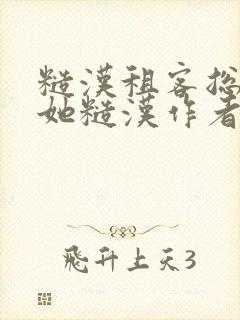 糙漢租客找
她糙漢作者
飛升上天3